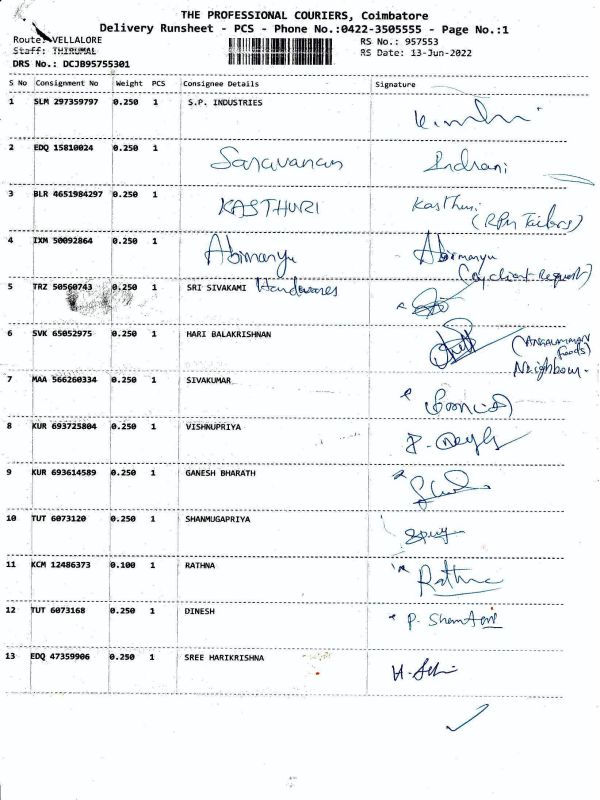 THE PROFESSIONAL COURIERS, Coimbatore
Delivery Runsheet - PCS - Phone No.:0422-3505555 - Page No.:1
Route: VELLALORE
RS No.: 957553
Staff: THIRUMAL
RS Date: 13-Jun-2022
DRS No.: DCJB95755301
S No Consignment No Weight PCS Consignee Details Signature
1 SLM 297359797 0.250 1 S.P. INDUSTRIES
2 EDQ 15810024 0.250 1 Saravanan Indrani
3 BLR 4651984297 0.250 1 KASTHURI Kasthuri
(RPM Tailors)
4 IXM 50092864 0.250 1 Abimanyu Abimanyu
(By client Request)
5 TRZ 50560743 0.250 1 SRI SIVAKAMI Hardwares
6 SVK 65052975 0.250 1 HARI BALAKRISHNAN (ANGALAMMAN
Foods)
Neighbour.
7 MAA 566260334 0.250 1 SIVAKUMAR
8 KUR 693725804 0.250 1 VISHNUPRIYA
9 KUR 693614589 0.250 1 GANESH BHARATH
10 TUT 6073120 0.250 1 SHANMUGAPRIYA
11 KCM 12486373 0.100 1 RATHNA Rathna
12 TUT 6073168 0.250 1 DINESH
13 EDQ 47359906 0.250 1 SREE HARIKRISHNA